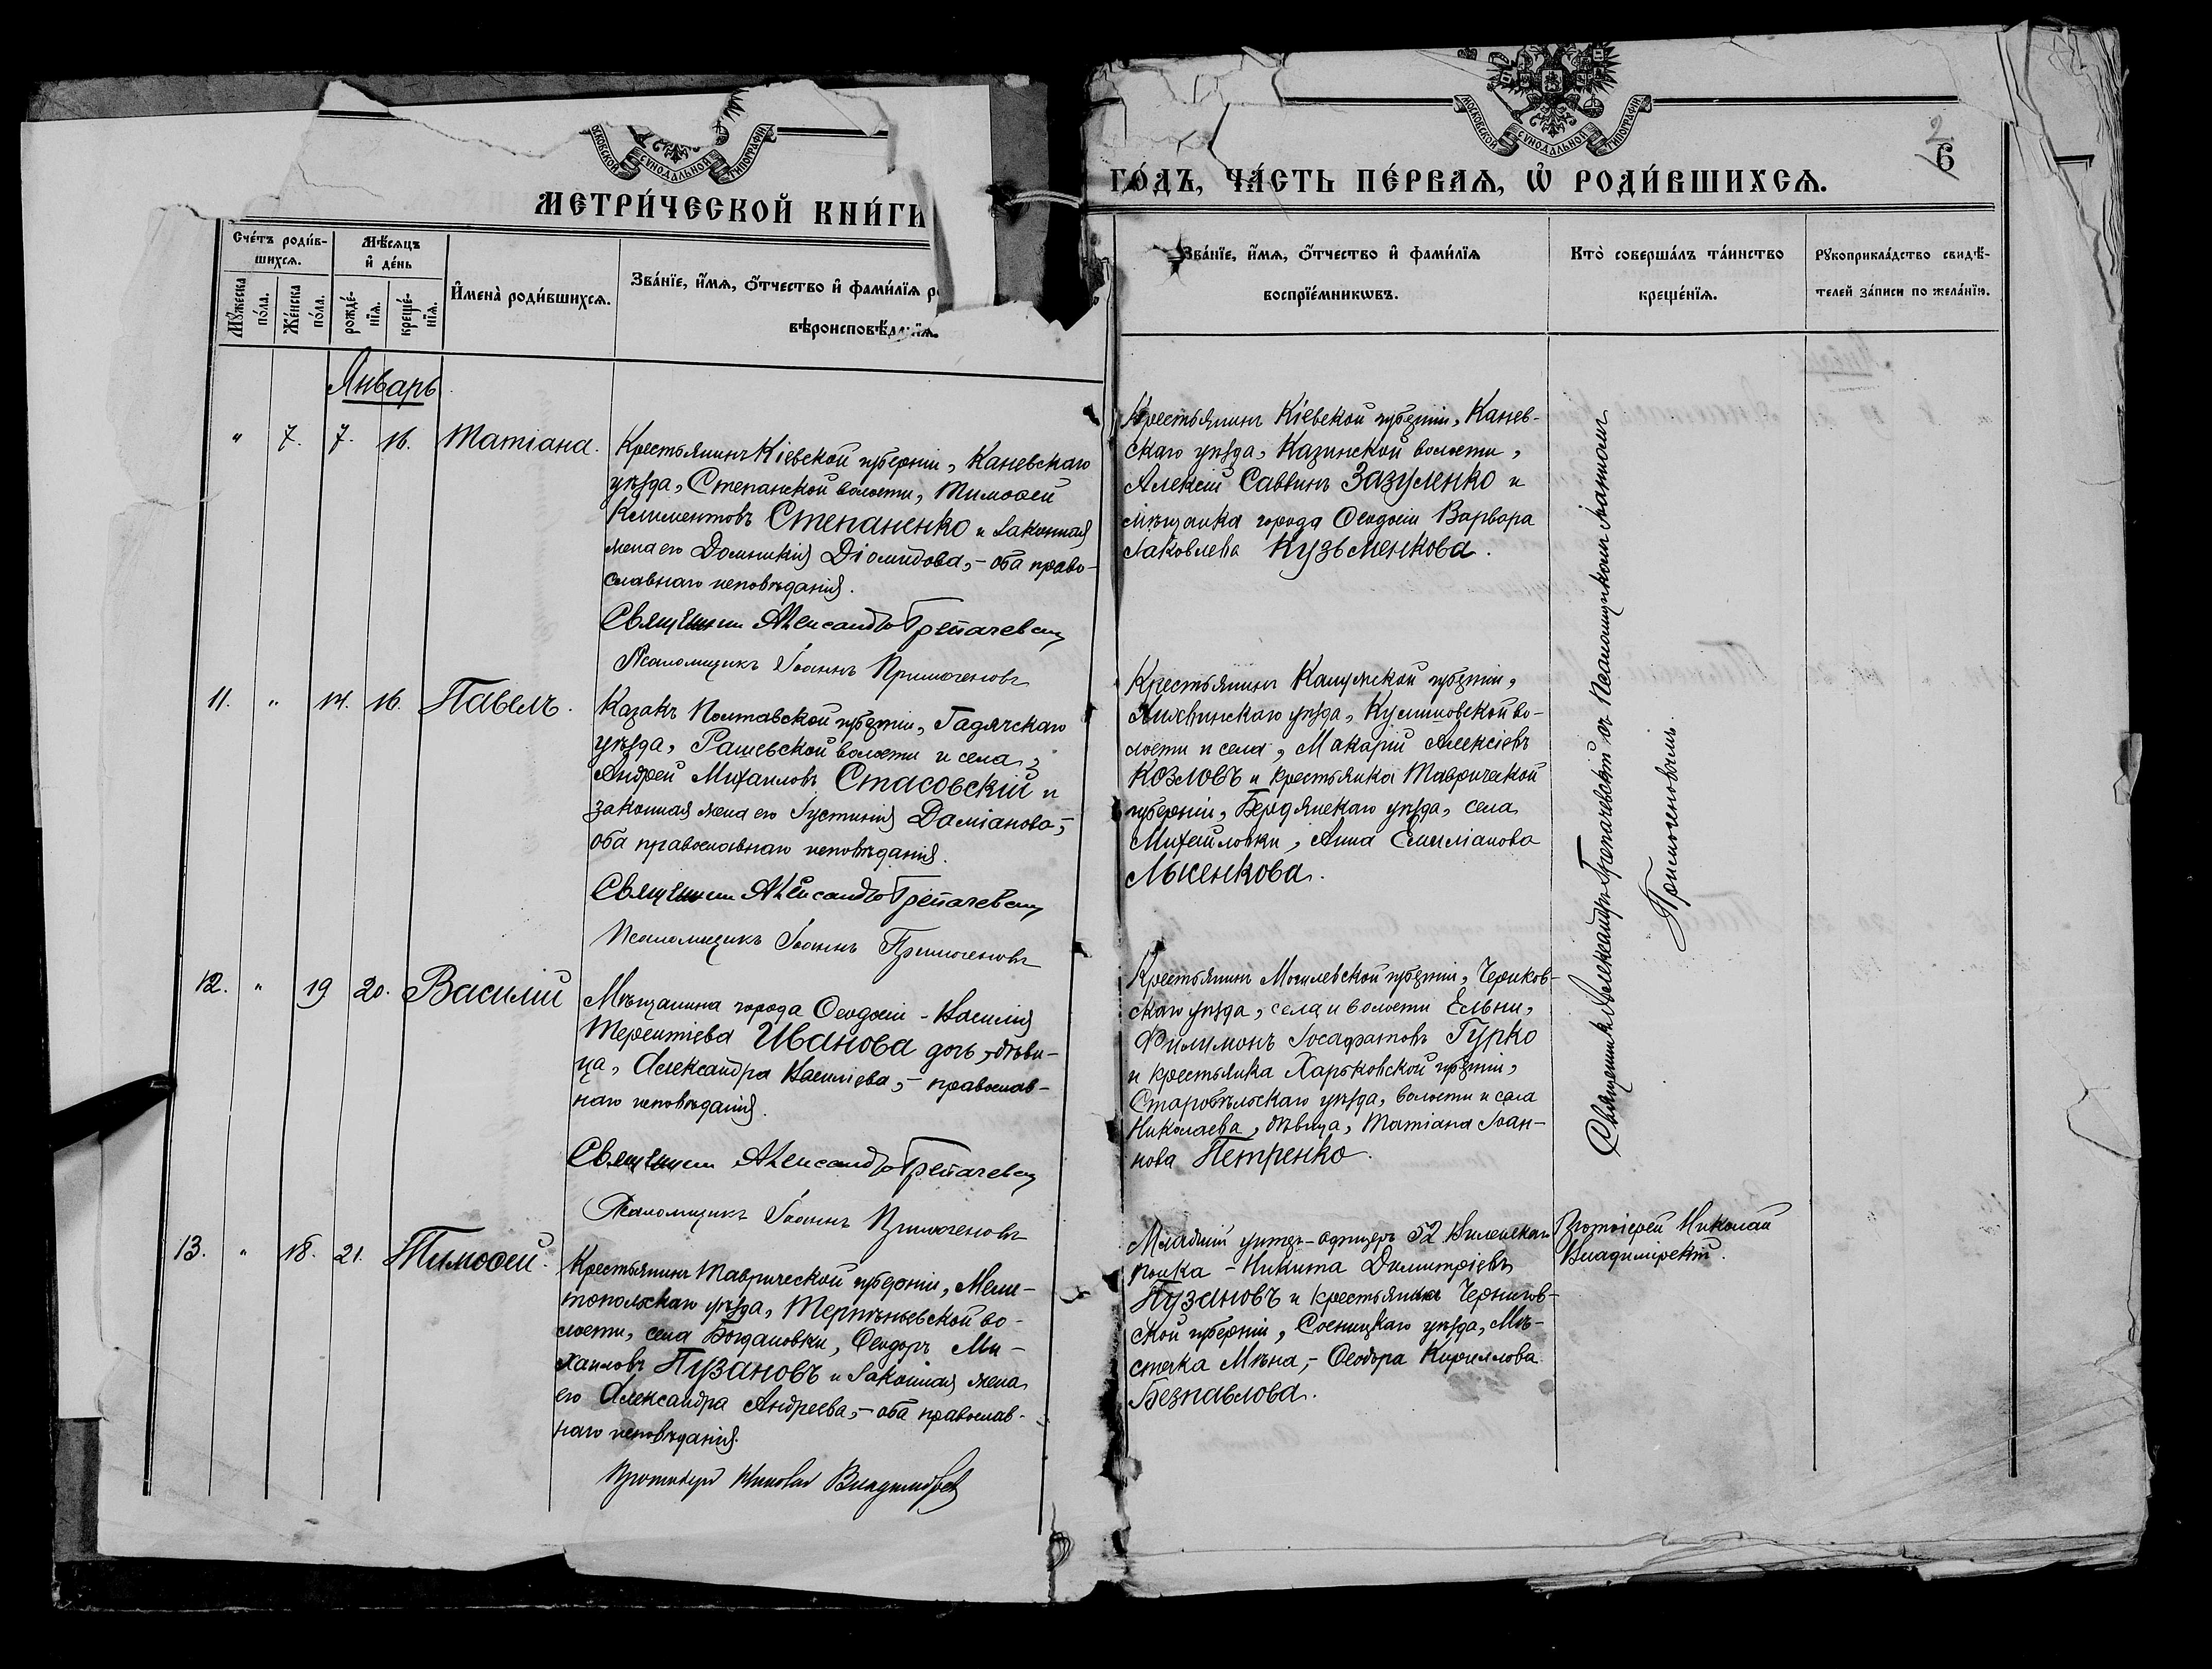 МОСКОВСКОЙ СѴНОДАЛЬНОЙ ТИПОГРАФІИ
МЕТРИ́ЧЕСКОЙ КНИ́ГИ
Сче́тъ роди́в-
шихсѧ.
Мѣ́сѧцъ
и҆ де́нь
Мꙋ́жеска
по́ла.
Же́нска
по́ла.
рожде́-
нїѧ.
креще́-
нїѧ.
И҆мена̀ роди́вшихсѧ.
Зва́нїе, и҆́мѧ, ѻ҆́тчество и҆ фами́лїѧ
вѣроисповѣ́данїѧ.
Январь
" 7. 7. 16. Татіана.
Крестьянинъ Кіевской губерніи, Каневскаго
уѣзда, Степанской волости, Тимоѳей
Климентовъ Степаненко и законная
жена его Домникія Діомидова,- оба право-
славнаго исповѣданія.
Священник Александр Грепачевский
Псаломщикъ Іоаннъ Примогеновъ
11. " 14. 16. Павелъ.
Казакъ Полтавской губерніи, Гадячскаго
уѣзда, Рашевской волости и села,
Андрей Михаиловъ Стасовскій и
законная жена его Іустинія Даміанова,-
оба православнаго исповѣданія.
Священник Александр Грепачевский
Псаломщикъ Іоаннъ Примогеновъ
12. " 19 20. Василій
Мѣщанина города Ѳеодосіи - Василія
Терентіева Иванова дочь, дѣви-
ца, Александра Василіева,- православ-
наго исповѣданія.
Священник Александр Грепачевский
Псаломщикъ Іоаннъ Примогеновъ
13. " 18. 21. Тимоѳей.
Крестьянинъ Таврической губерніи, Мели-
топольскаго уѣзда, Терпѣньевской во-
лости, села Богдановки, Ѳеодоръ Ми-
хаиловъ Пузановъ и законная жена
его Александра Андреева,- оба православ-
наго исповѣданія.
Протоіерей Николай Владимірскій
МОСКОВСКОЙ СѴНОДАЛЬНОЙ ТИПОГРАФІИ
2
6
ГО́ДЪ, ЧА́СТЬ ПЕ́РВАѦ, Ѡ҆ РОДИ́ВШИХСѦ.
Зва́нїе, и҆́мѧ, ѻ҆́тчество и҆ фами́лїѧ
воспрїе́мникѡвъ.
Кто̀ соверша́лъ та́инство
креще́нїѧ.
Рꙋкоприкла́дство свидѣ́-
телей за́писи по жела́нїю.
Крестьянинъ Кіевской губерніи, Канев-
скаго уѣзда, Казинской волости,
Алексій Саввинъ Зазуленко и
мѣщанка города Ѳеодосіи Варвара
Іаковлева Кузьменкова.
Крестьянинъ Калужской губерніи,
Лихвинскаго уѣзда, во-
лости и села, Макарій Алексіевъ
Козловъ и крестьянка Таврической
губерніи, Бердянскаго уѣзда, села
Михайловки, Анна Емиліанова
Лысенкова.
Крестьянинъ Могилевской губерніи, Чериков-
скаго уѣзда, села и волости Ельни,
Филимонъ Іосафатовъ Гурко
и крестьянка Харьковской губерніи,
Старобѣльскаго уѣзда, волости и села
Николаева, дѣвица, Татіана Іоан-
нова Петренко.
Младшій унтер-офицеръ 52 Виленскаго
полка - Никита Димитріевъ
Пузановъ и крестьянка Чернигов-
ской губерніи, Сосницкаго уѣзда, Мѣ-
стечка Мѣна,- Ѳеодора Кириллова
Безпавлова.
Священникъ Александръ Грепачевскій съ псаломщикомъ Іоанномъ
Примогеновымъ.
Протоіерей Николай
Владимірскій.